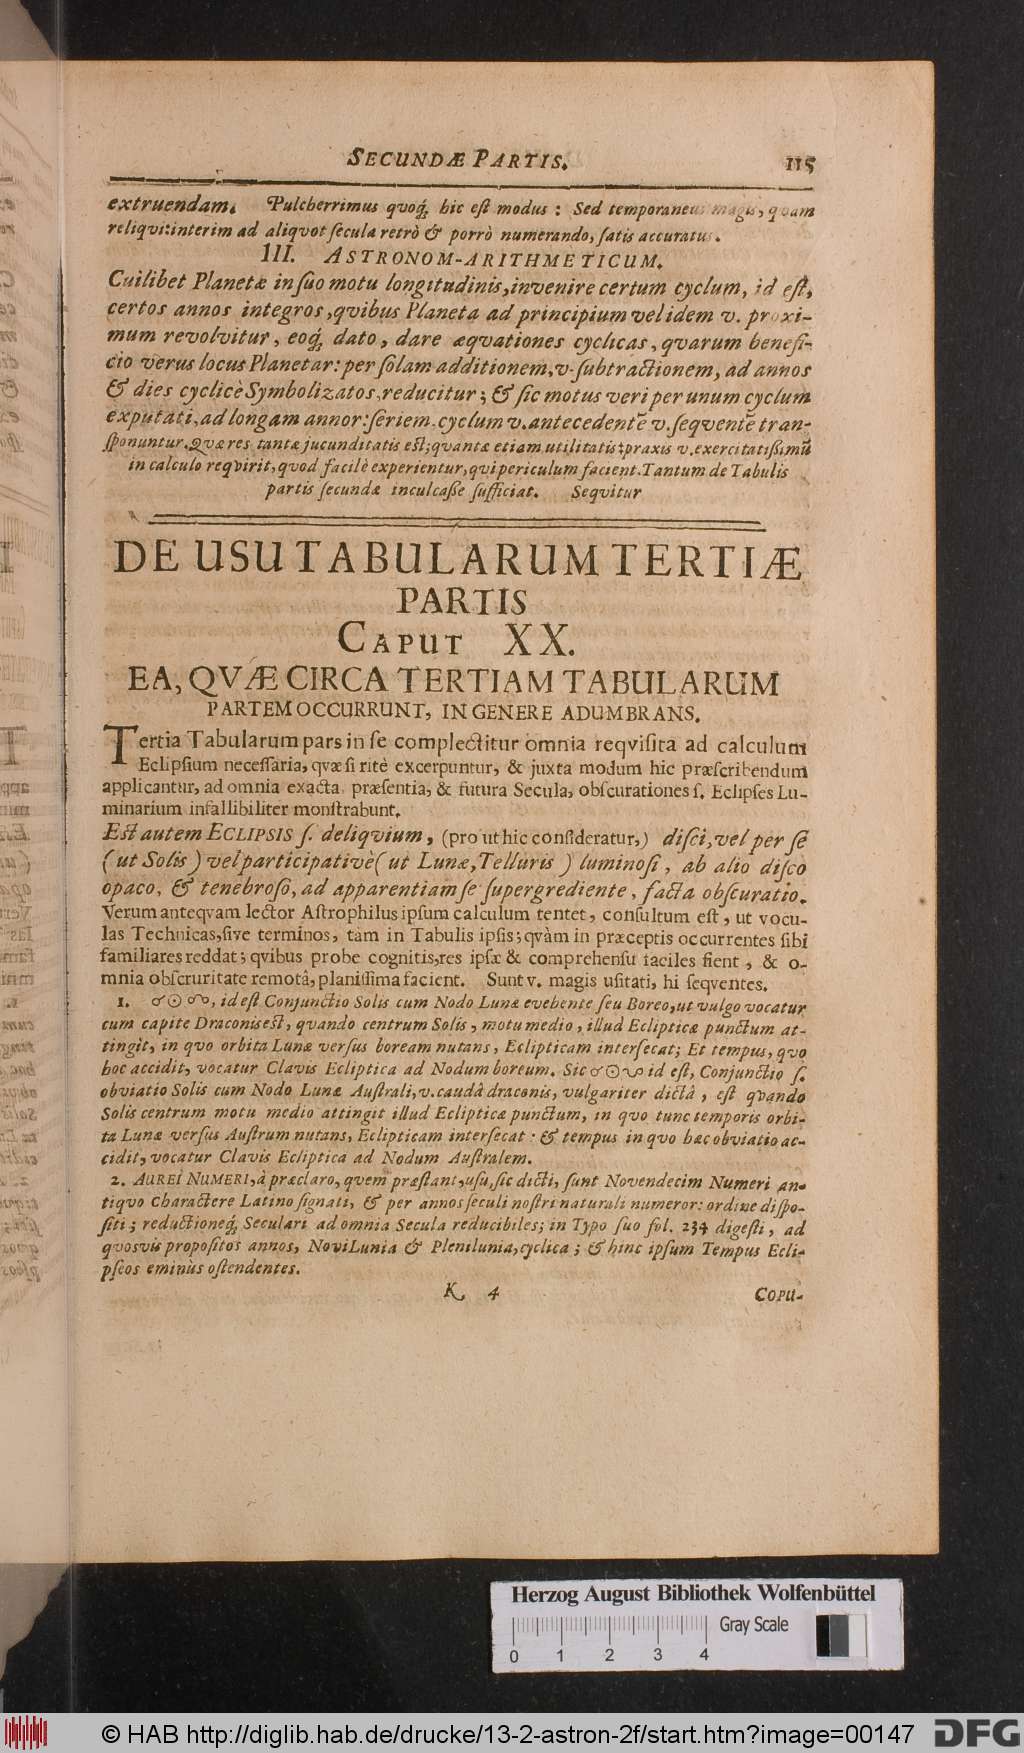 SECUNDÆ PARTIS. 115
extruendam. Pulcherrimus quoq́; hic eſt modus : Sed temporaneus magis, qvam
reliqvi: interim ad aliqvot ſecula retrò & porrò numerando, ſatis accuratus.
III. ASTRONOM-ARITHMETICUM.
Cuilibet Planetæ in ſuo motu longitudinis, invenire certum cyclum, id eſt,
certos annos integros, qvibus Planeta ad principium vel idem v. proxi-
mum revolvitur, eoq́; dato, dare æqvationes cyclicas, qvarum benefi-
cio verus locus Planetar: per ſolam additionem, v. ſubtractionem, ad annos
& dies cyclicè Symbolizatos, reducitur; & ſic motus veri per unum cyclum
exputati, ad longam annor: ſeriem. cyclum v. antecedentē v. ſeqventē tran-
ſponuntur. Qvæ res tantæ jucunditatis eſt; quantæ etiam utilitatis: praxis v. exercitatiſſimū
in calculo reqvirit, quod facilè experientur, qvi periculum facient. Tantum de Tabulis
partis ſecundæ inculcaſſe ſufficiat. Seqvitur
DE USU TABULARUM TERTIÆ
PARTIS
CAPUT XX.
EA, QVÆ CIRCA TERTIAM TABULARUM
PARTEM OCCURRUNT, IN GENERE ADUMBRANS.
Tertia Tabularum pars in ſe complectitur omnia reqviſita ad calculum
Eclipſium neceſſaria, qvæ ſi ritè excerpuntur, & juxta modum hic præſcribendum
applicantur, ad omnia exacta præſentia, & futura Secula, obſcurationes ſ. Eclipſes Lu-
minarium infallibiliter monſtrabunt.
Eſt autem ECLIPSIS ſ. deliqvium, (pro ut hic conſideratur,) diſci, vel per ſe
(ut Solis) vel participativè (ut Lunæ, Telluris) luminoſi, ab alio diſco
opaco, & tenebroſo, ad apparentiam ſe ſupergrediente, facta obſcuratio.
Verum anteqvam lector Aſtrophilus ipſum calculum tentet, conſultum eſt, ut vocu-
las Technicas, ſive terminos, tàm in Tabulis ipſis; qvàm in præceptis occurrentes ſibi
familiares reddat; qvibus probe cognitis, res ipſæ & comprehenſu faciles fient, & o-
mnia obſcruritate remotâ, planiſſima facient. Sunt v. magis uſitati, hi ſeqventes.
1. ☌☉☊, id eſt Conjunctio Solis cum Nodo Lunæ evehente ſeu Boreo, ut vulgo vocatur
cum capite Draconis eſt, quando centrum Solis, motu medio, illud Eclipticæ punctum at-
tingit, in qvo orbita Lunæ verſus boream nutans, Eclipticam interſecat; Et tempus, qvo
hoc accidit, vocatur Clavis Ecliptica ad Nodum boreum. Sic ☌☉☋ id eſt, Conjunctio ſ.
obviatio Solis cum Nodo Lunæ Auſtrali, v. caudâ draconis, vulgariter dictâ, eſt qvando
Solis centrum motu medio attingit illud Eclipticæ punctum, in qvo tunc temporis orbi-
ta Lunæ verſus Auſtrum nutans, Eclipticam interſecat : & tempus in qvo hæc obviatio ac-
cidit, vocatur Clavis Ecliptica ad Nodum Auſtralem.
2. AUREI NUMERI, à præclaro, qvem præſtant, uſu, ſic dicti, ſunt Novendecim Numeri an-
tiqvo Charactere Latino ſignati, & per annos ſeculi noſtri naturali numeror: ordine diſpo-
ſiti; reductioneq́; Seculari ad omnia Secula reducibiles; in Typo ſuo fol. 234 digeſti, ad
qvosvis propoſitos annos, NoviLunia & Plenilunia, cyclica; & hinc ipſum Tempus Ecli-
pſeos eminùs oſtendentes.
K 4 COPU-
Herzog August Bibliothek Wolfenbüttel
Gray Scale
0 1 2 3 4
© HAB http://diglib.hab.de/drucke/13-2-astron-2f/start.htm?image=00147 DFG